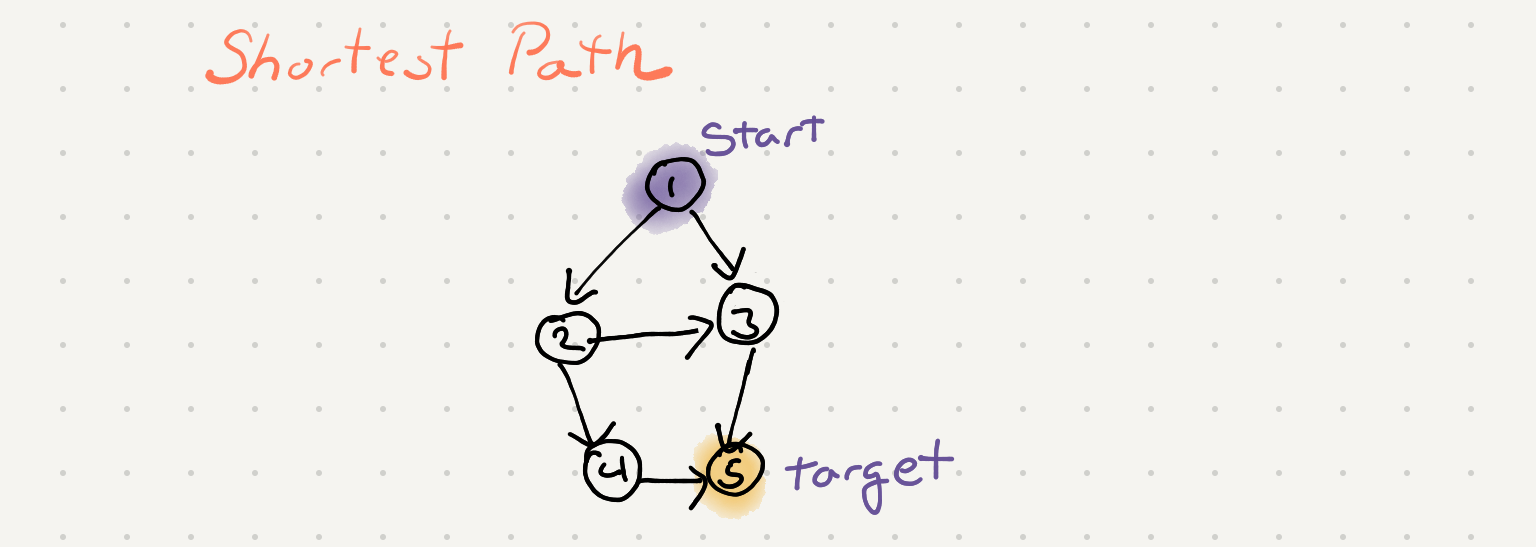 Shortest Path
Start
1
2
3
4
5
target